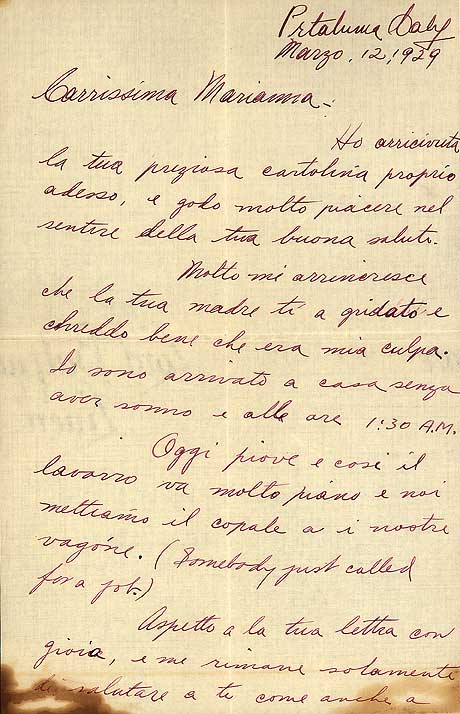 Petaluma Calif
Marzo, 12, 1929
Carrissima Marianna -
Ho arricivuta
la tua preziosa cartolina proprio
adesso, e godo molto piacere nel
sentire della tua buona salute.
Molto mi arrincresce
che la tua madre ti a gridato e
chreddo bene che era mia culpa.
Io sono arrivato a casa senza
aver sonno e alle ore 1:30 A.M.
Oggi piove e cosi il
lavorro va molto piano e noi
mettiamo il copale a i nostre
vagóne. (Somebody just called
for a job.)
Aspetto a la tua lettra con
gioia, e me rimane solamente
di salutare a te come anche a